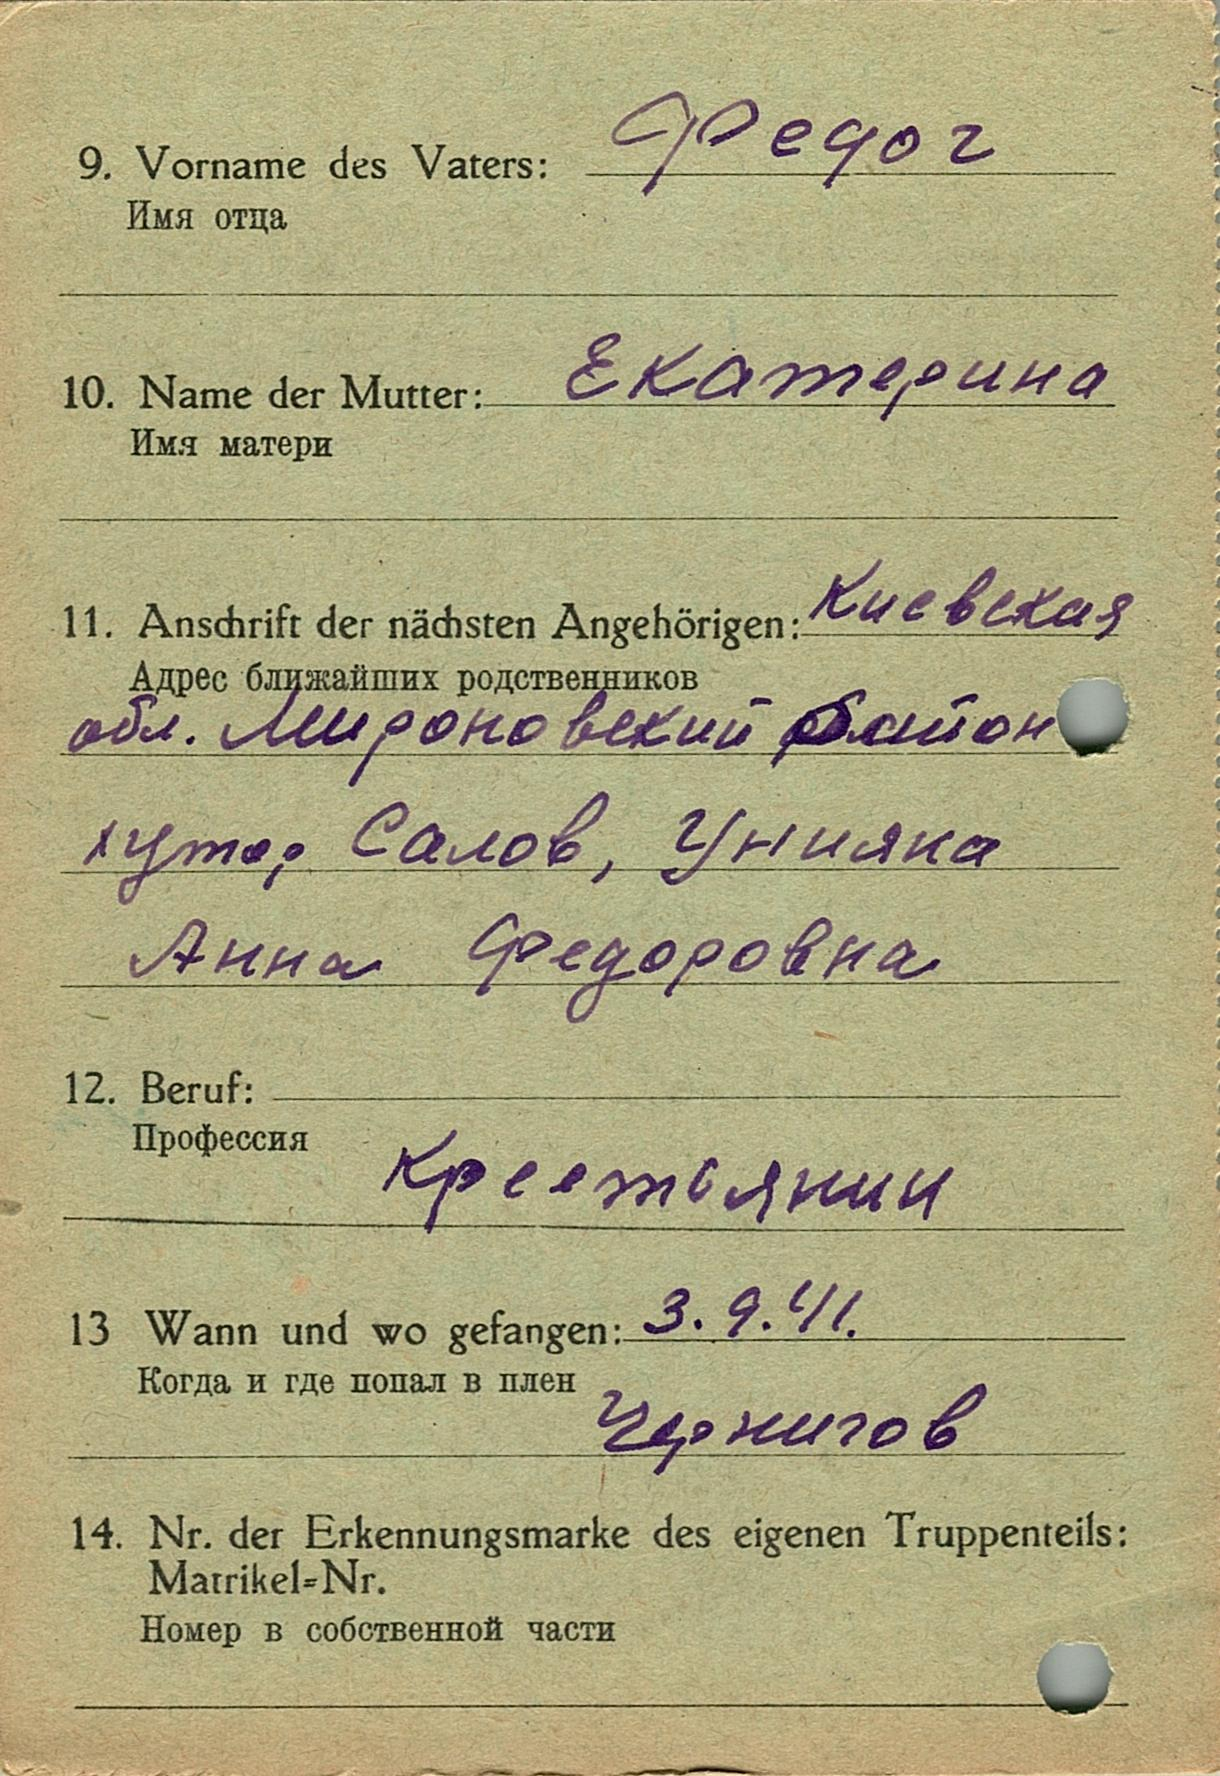 9. Vorname des Vaters: Федог
Имя отца
10. Name der Mutter: Екатерина
Имя матери
11. Anschrift der nächsten Angehörigen: Киевская
Адрес ближайших родственников
обл. Мироновский район
хутор Салов, Унияка
Анна Федоровна
12. Beruf:
Профессия
Крестьянин
13 Wann und wo gefangen: 3.9.41.
Когда и где попал в плен
Чернигов
14. Nr. der Erkennungsmarke des eigenen Truppenteils:
Matrikel=Nr.
Номер в собственной части